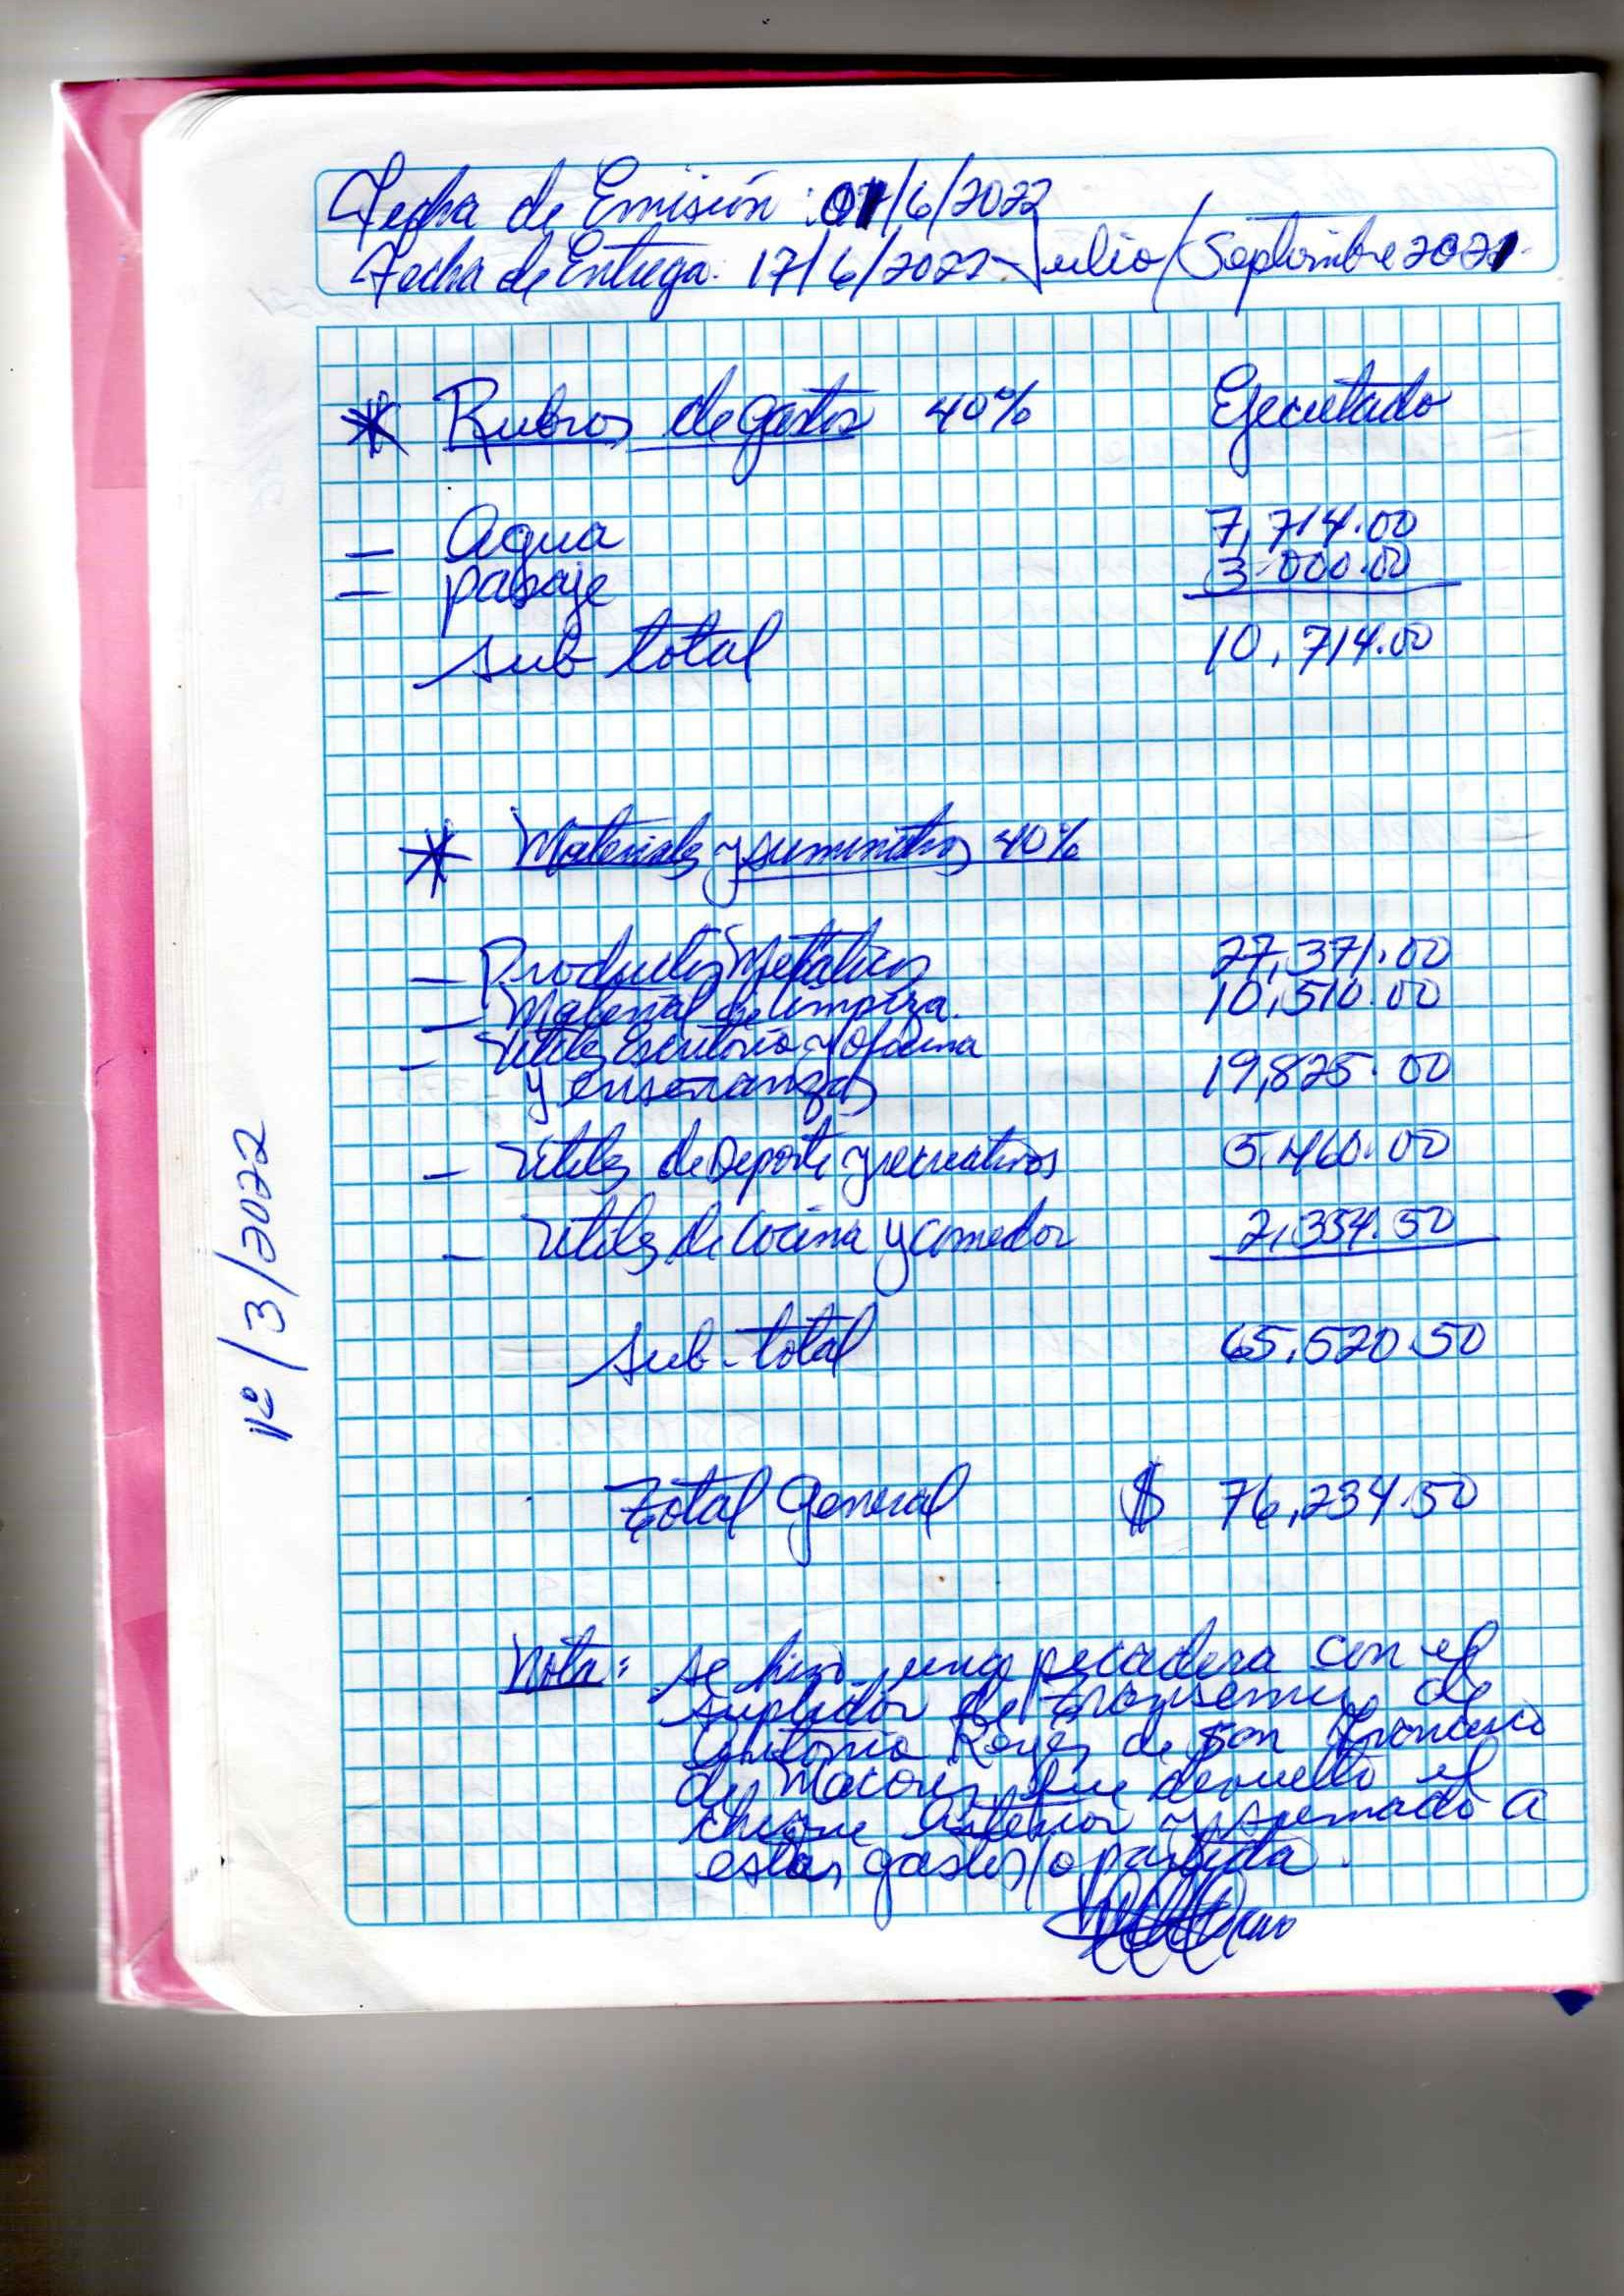 Fecha de Emisión: 01/6/2022
Fecha de Entrega: 17/6/2022 - Julio/Septiembre 2021
* Rubros de gastos 40% Ejecutado
- Agua 7,714.00
- pasaje 3,000.00
sub total 10,714.00
* Materiales y suministros 40%
- Productos Metálicos 27,371.00
- Material de limpieza. 10,510.00
- Utiles Escritorio y oficina
y enseñanzas 19,825.00
- Utiles de Deporte y recreativos 5,460.00
- Utiles de Cocina y comedor 2,354.50
sub-total 65,520.50
Total General $ 76,234.50
Nota: se hizo una con el
suplidor de de
Antonio Reyes de San Francisco
de Macoris, fue devuelto el
cheque anterior y sumado a
estos gastos/o partida.
Nº/3/2022